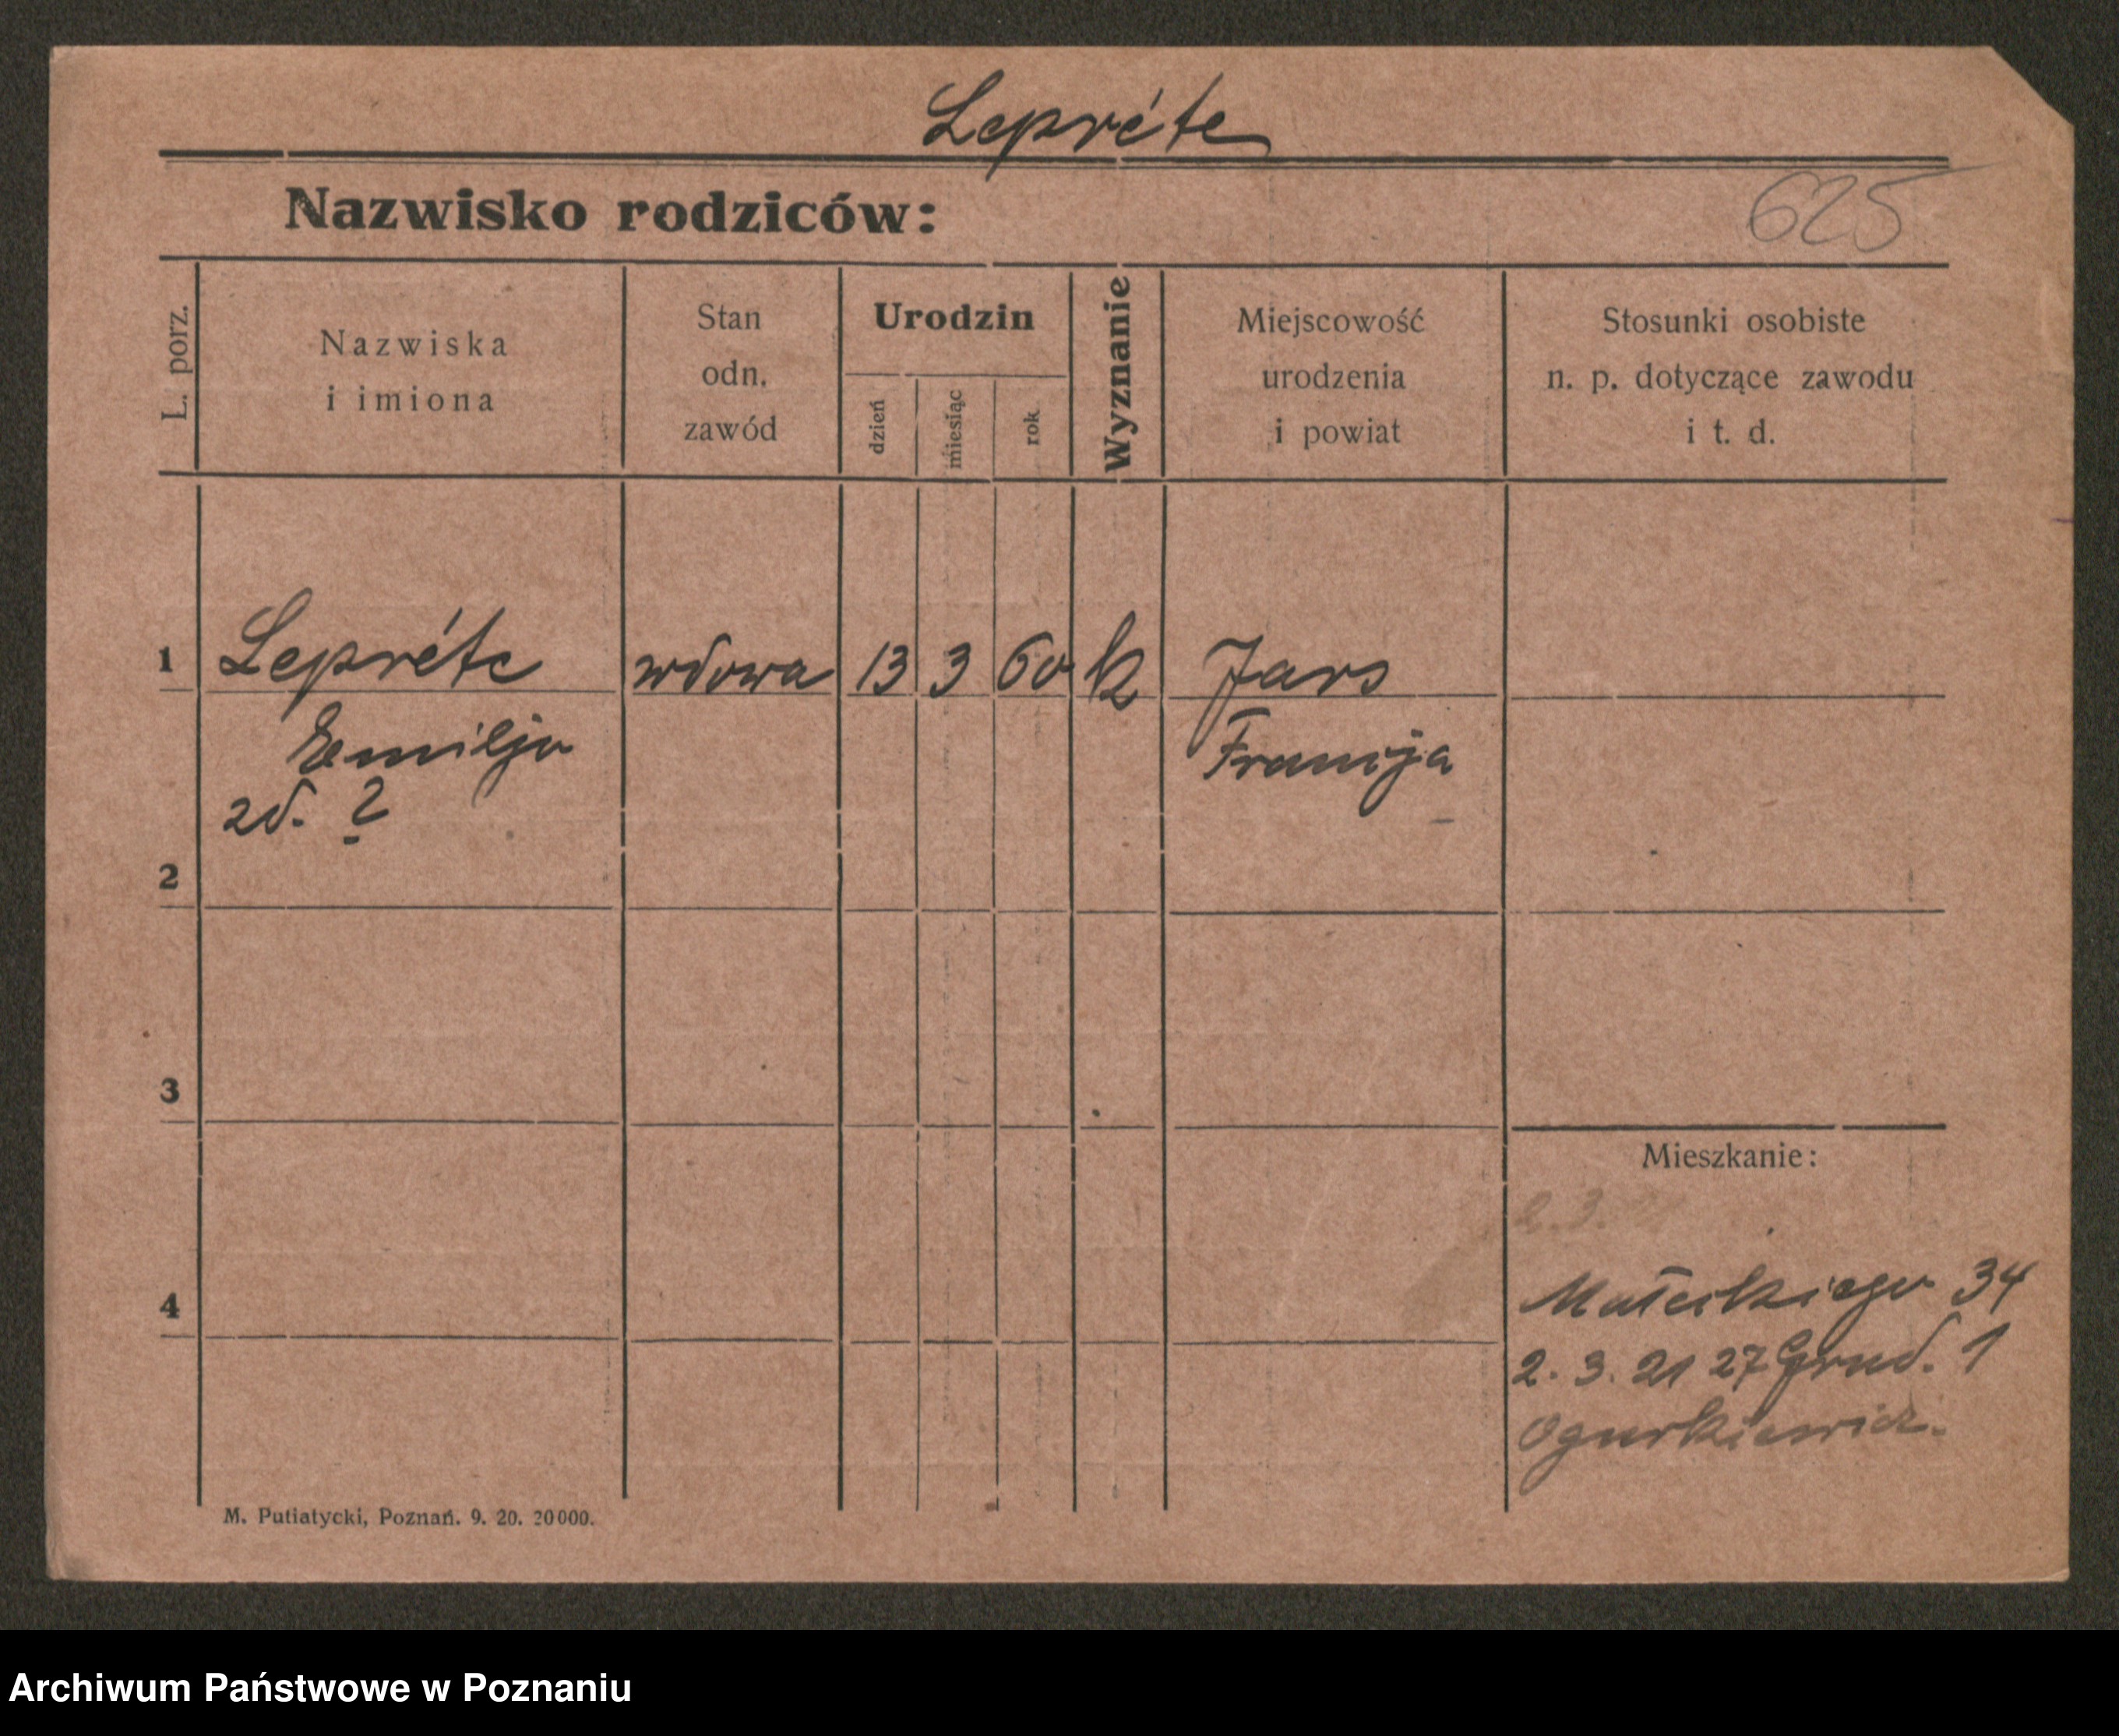 Lepréte
Nazwisko rodziców:
625
L. porz.
Nazwiska
i imiona
Stan
odn.
zawód
Urodzin
dzień
miesiąc
rok
Wyznanie
Miejscowość
urodzenia
i powiat
Stosunki osobiste
n. p. dotyczące zawodu
i t. d.
1 Lepréte wdowa 13 3 60 k Jars
Emilja Francja
zd. ?
2
3
Mieszkanie:
2.3.
Małeckiego 34
4
2. 3. 21 27 Grud. 1
Ogurkiewicz.
M. Putiatycki, Poznań. 9. 20. 20000.
Archiwum Państwowe w Poznaniu